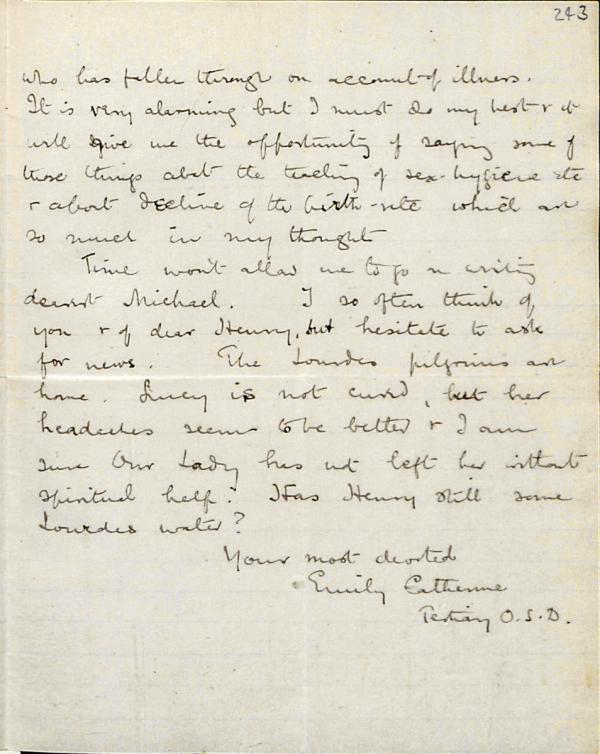 243
who has fallen through on account of illness.
It is very alarming but I must do my best & it
will give me the opportunity of saying some of
those things abt the teaching of sex-hygiene etc
& about decline of the birth-rate which are
so much in my thought
Time won't allow me to go on writing
dearest Michael. I so often think of
you & of dear Henry, but hesitate to ask
for news. The Lourdes pilgrims are
home. Lucy is not cured, but her
headaches seem to be better & I am
sure Our Lady has not left her without
spiritual help. Has Henry still some
Lourdes water?
Your most devoted
Emily Catherine
Tertiary O.S.D.